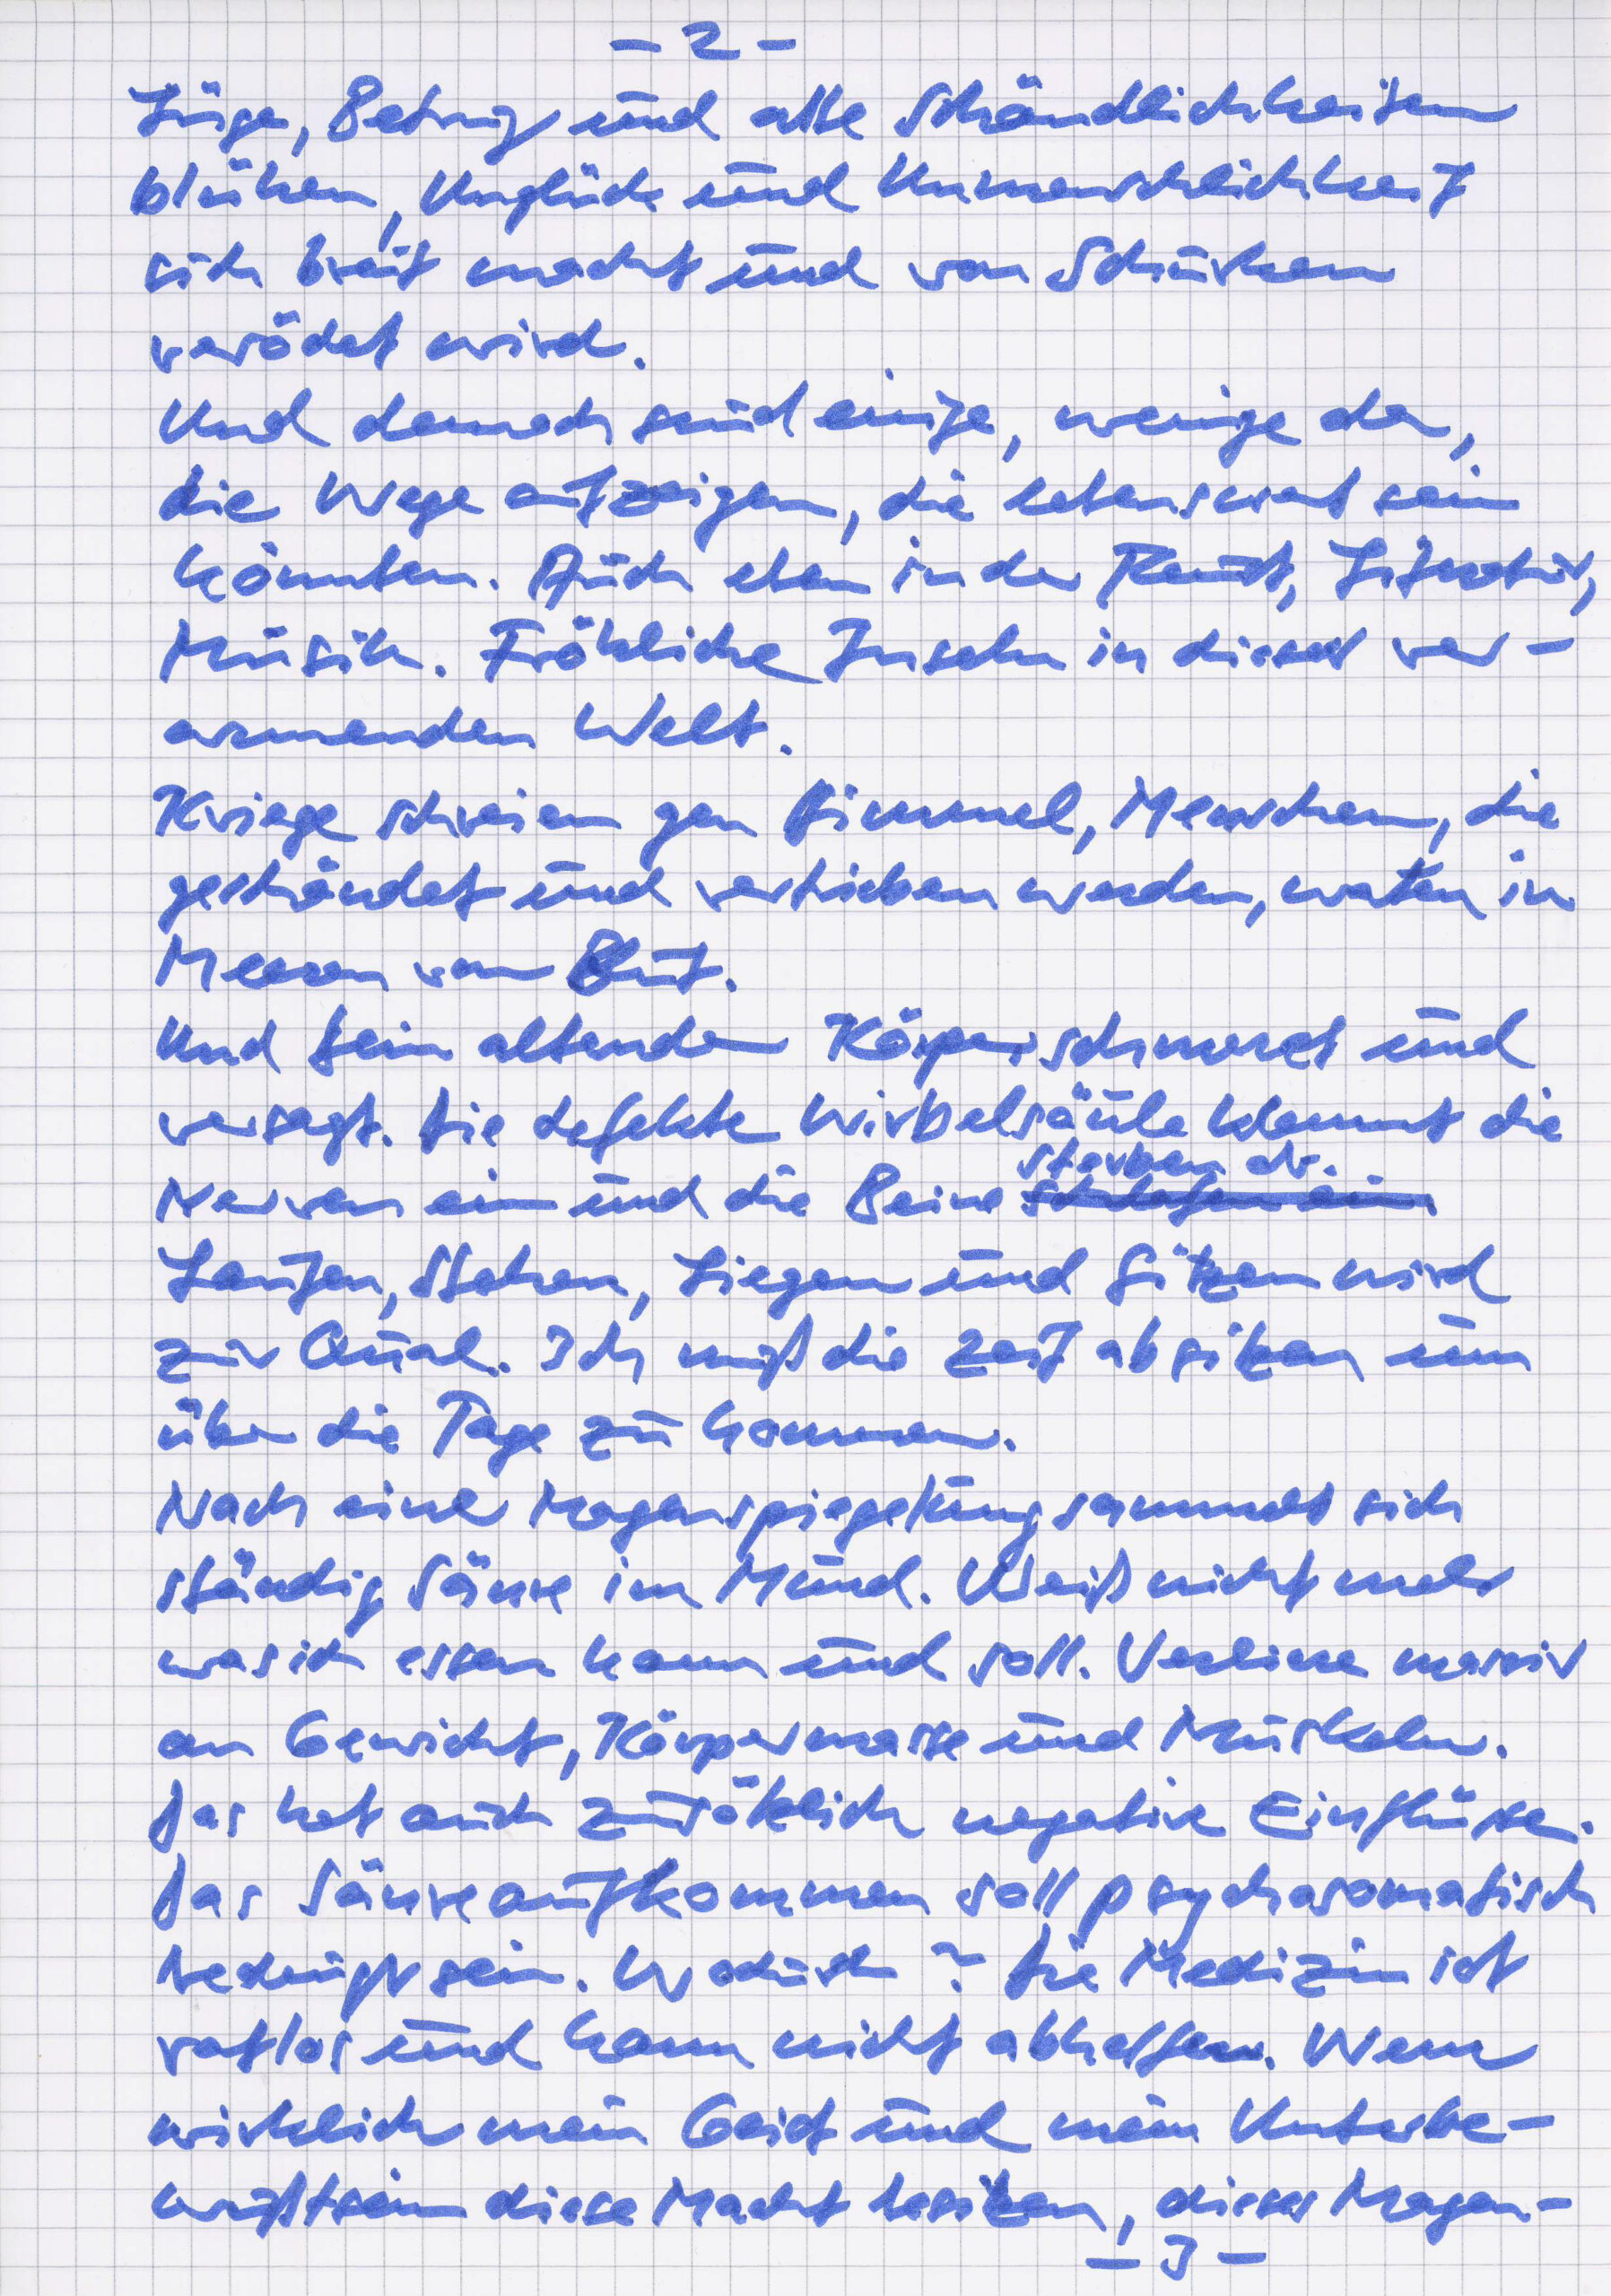 - 2 -
Lüge, Betrug und alle Schändlichkeiten
blühen, Unglück und Unmenschlichkeit
sich breit macht und von Schurken
verödet wird.
Und dennoch sind einige, wenige da,
die Wege aufzeigen, die lebenswert sein
könnten. Auch eben in der Kunst, Literatur,
Musik. Fröhliche Inseln in dieser ver-
armenden Welt.
Kriege schreien gen Himmel, Menschen, die
geschändet und vertrieben werden, waten in
Meeren von Blut.
Und der alternde Körper schmerzt und
versagt. Die defekte Wirbelsäule klemmt die
Nerven ein und die Beine sterben ab.
Laufen, Stehen, Liegen und Sitzen wird
zur Qual. Ich muß die Zeit absitzen um
über die Tage zu kommen.
Nach einer Magenspiegelung sammelt sich
ständig Säure im Mund. Weiß nicht mehr
was ich essen kann und soll. Verliere massiv
an Gewicht, Körpermasse und Muskeln.
Das hat auch zusätzlich negative Einflüsse.
Das Säureaufkommen soll psychosomatisch
bedingt sein. Wodurch? Die Medizin ist
ratlos und kann nicht abhelfen. Wenn
wirklich mein Geist und mein Unterbe-
wußtsein diese Macht besitzen, dieses Magen-
- 3 -